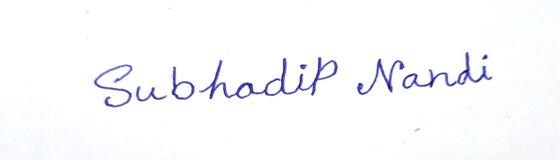 Subhadip Nandi